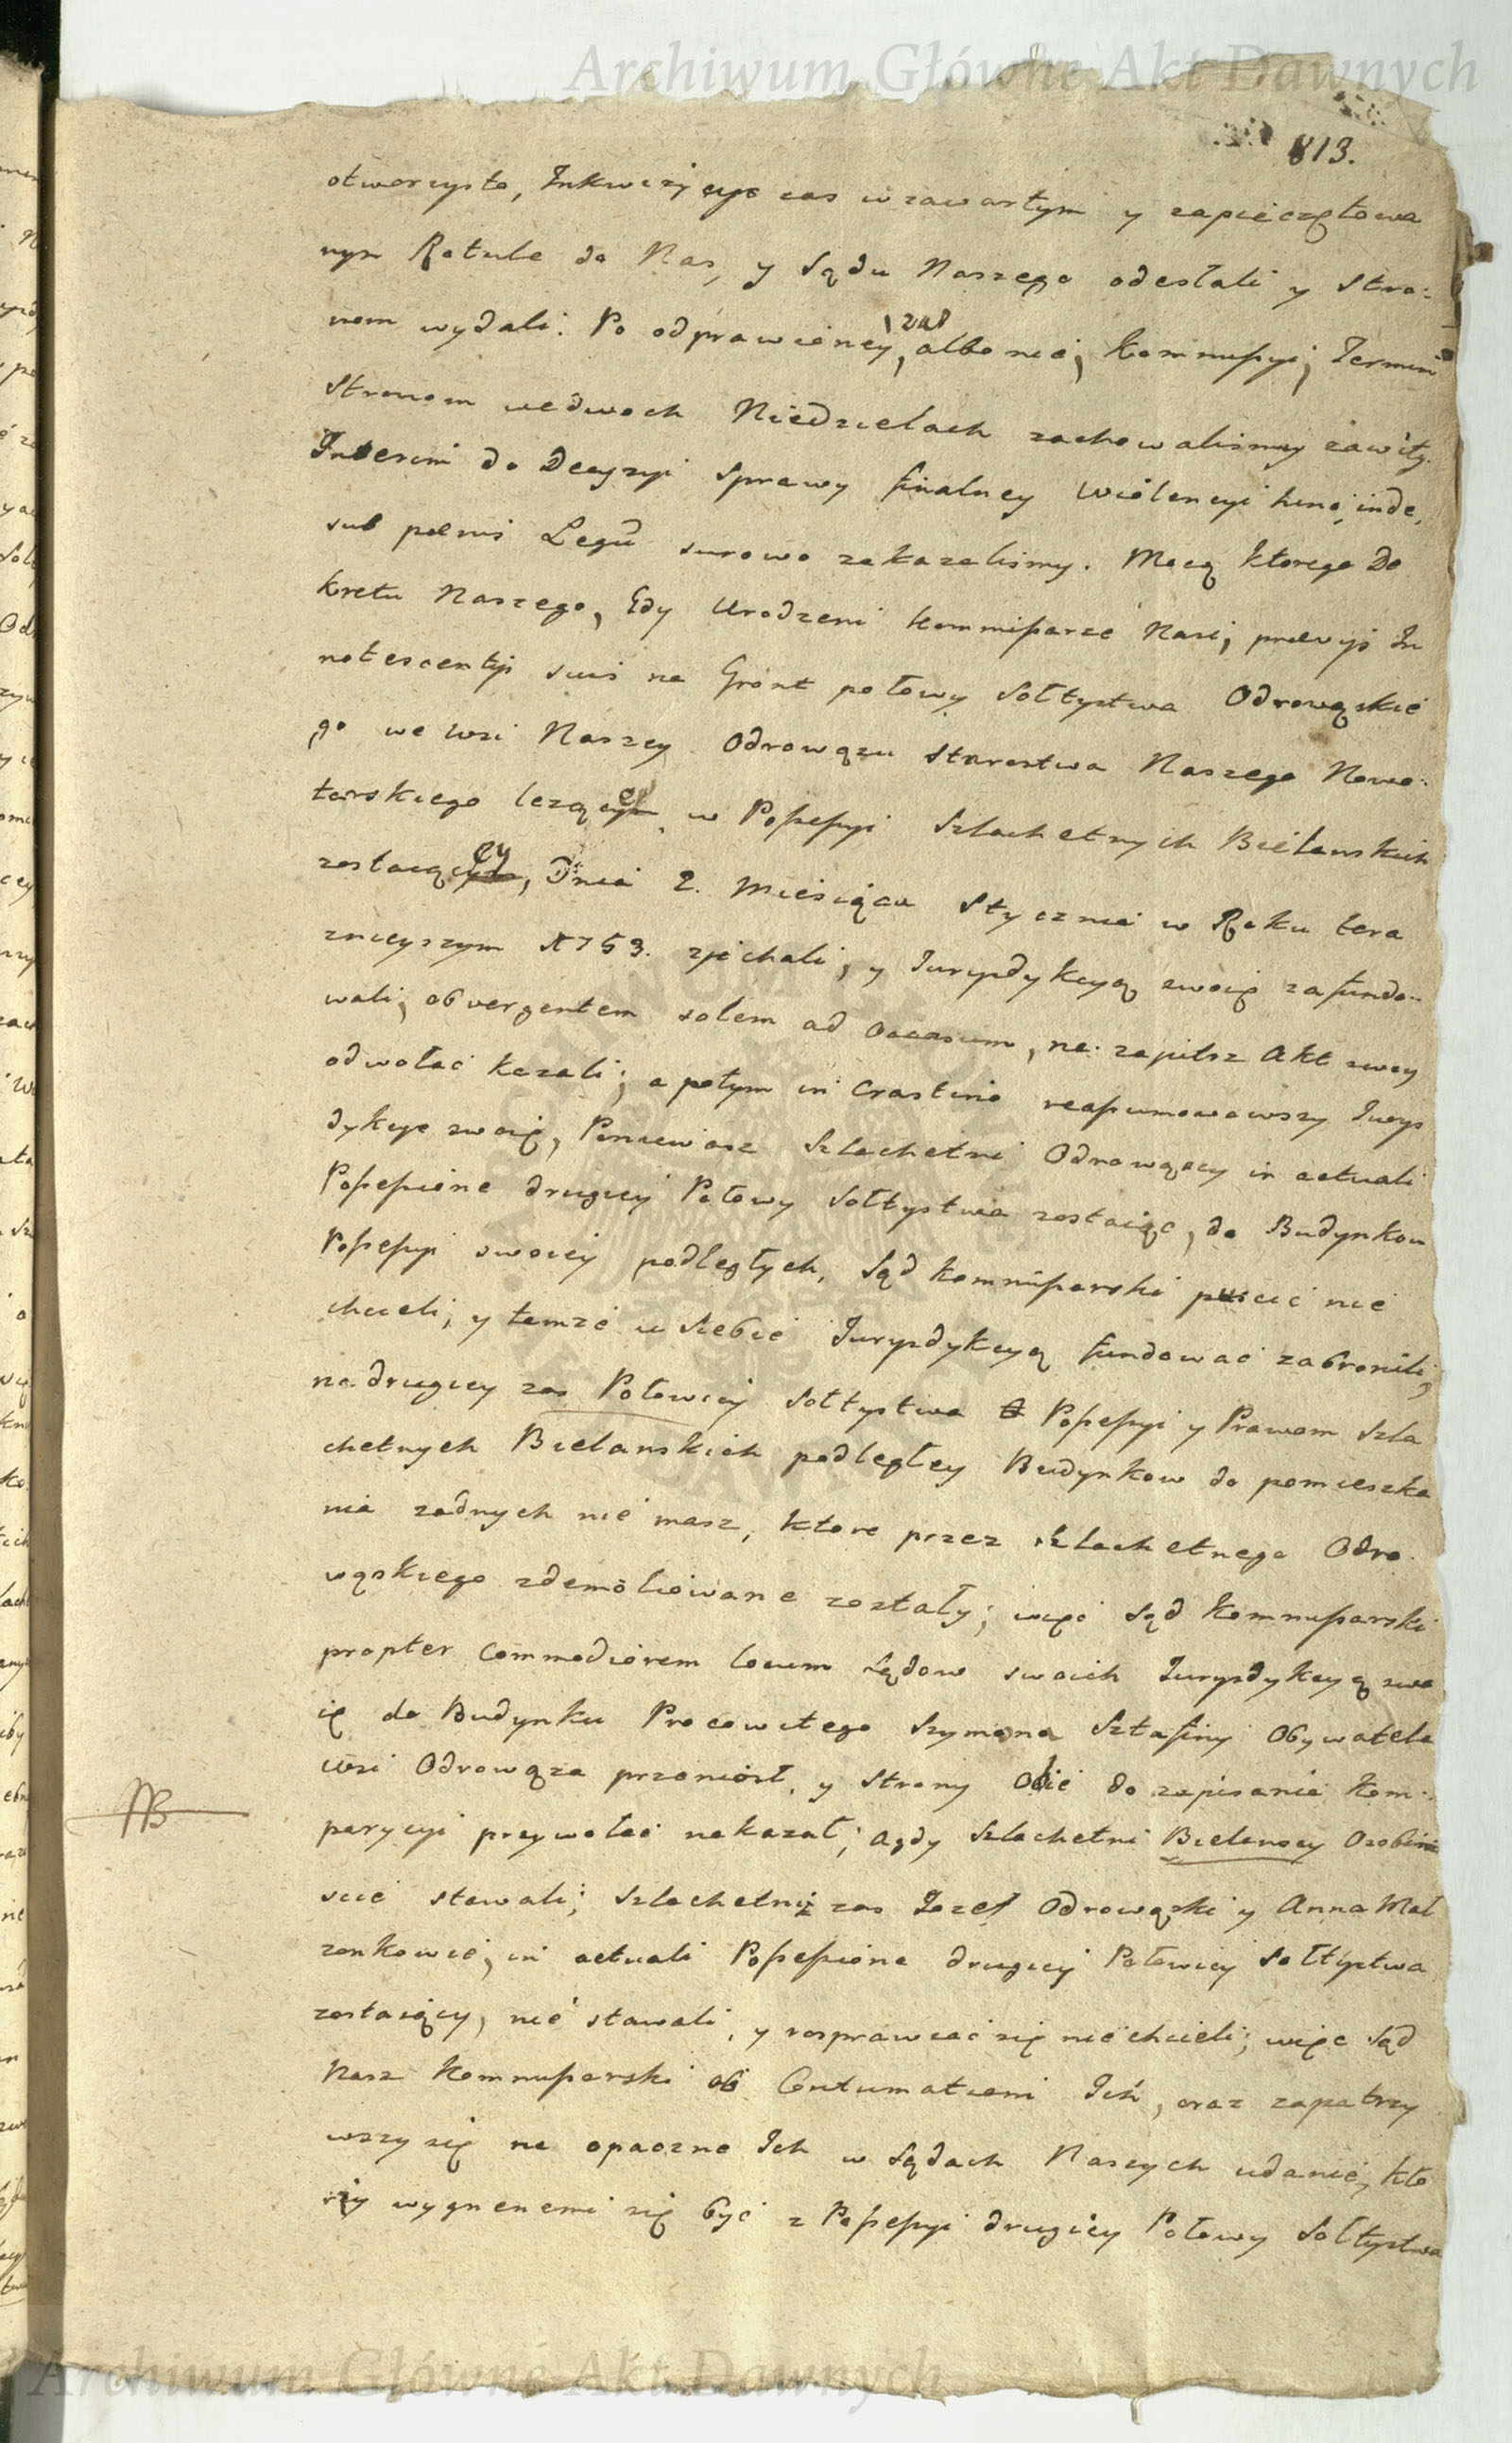 Archiwum Główne Akt Dawnych
813.
otworzysto, Inkwizycye zas w zawartym y zapieczętowa
nym Rotule do Nas, y Sądu Naszego odesłali y Stro:
nom wydali. Po odprawioney, zas albo nie, Kommissyi, Termin
Stronom we dwoch Niedzielach zachowalismy zawity.
Interim do Decyzyi Sprawy finalney Wiolencyi hinc inde,
sub pœnis Legũ surowo zakazalismy. Mocą ktorego De
kretu Naszego, Gdy Urodzeni Kommissarze Nasi, prævijs In
notescentijs suis na Gront połowy Sołtystwa Odrowąskie
go we wsi Naszey Odrowązu Starostwa Naszego Nowo:
tarskiego lezącey w Possessyi Szlachetnych Bielanskich
zostaiącey, Dnia 2. Miesiąca Stycznia w Roku tera
znieyszym 1753. zjechali, y Jurysdykcyą swoię zafundo:
wali, ob vergentem solem ad occasum, na zaiutsz Akt swoy
odwołac kazali; a potym in crastino reassumowawszy Jurys
dykcye swoię, Poniewasz Szlachetni Odrowąscy in actuali
Possessione drugiey Połowy Sołtystwa zostaiąc, do Budynkow
Possessyi swoiey podległych, Sąd Kommissarski puscic nie
chcieli, y temze u siebie Jurysdykcyą fundowac zabronili,
na drugiey zas Połowicy Sołtystwa Possessyi y Prawom Szla
chetnych Bielanskich podległey Budynkow do pomieszka
nia zadnych nie masz, ktore przez Szlachetnego Odro
wąskiego zdemoliowane zostały; więc Sąd Kommissarski
propter commodiorem locum Sądow swoich Jurysdykcyą swo
ię do Budynku Pracowitego Szymona Sztafiny Obywatela
wsi Odrowąza przeniosł, y Strony Obie do zapisania Kom:
parycyi przywołac nakazał; a gdy Szlachetni Bielanscy Osobi
scie stawali; Szlachetni zas Jozef Odrowąski y Anna Mał
zonkowie, in actuali Possessione drugiey Połowicy Sołtystwa
zostaiący, nie stawali, y rosprawiac się nie chcieli; więc Sąd
Nasz Kommissarski ob Contumatiam Ich, oraz zapatrzy
wszy się na opaczne Ich w Sądach Naszych udanie, kto
rzy wygnanemi się byc z Possessyi drugiey Połowy Sołtystwa
NB
Archiwum Główne Akt Dawnych